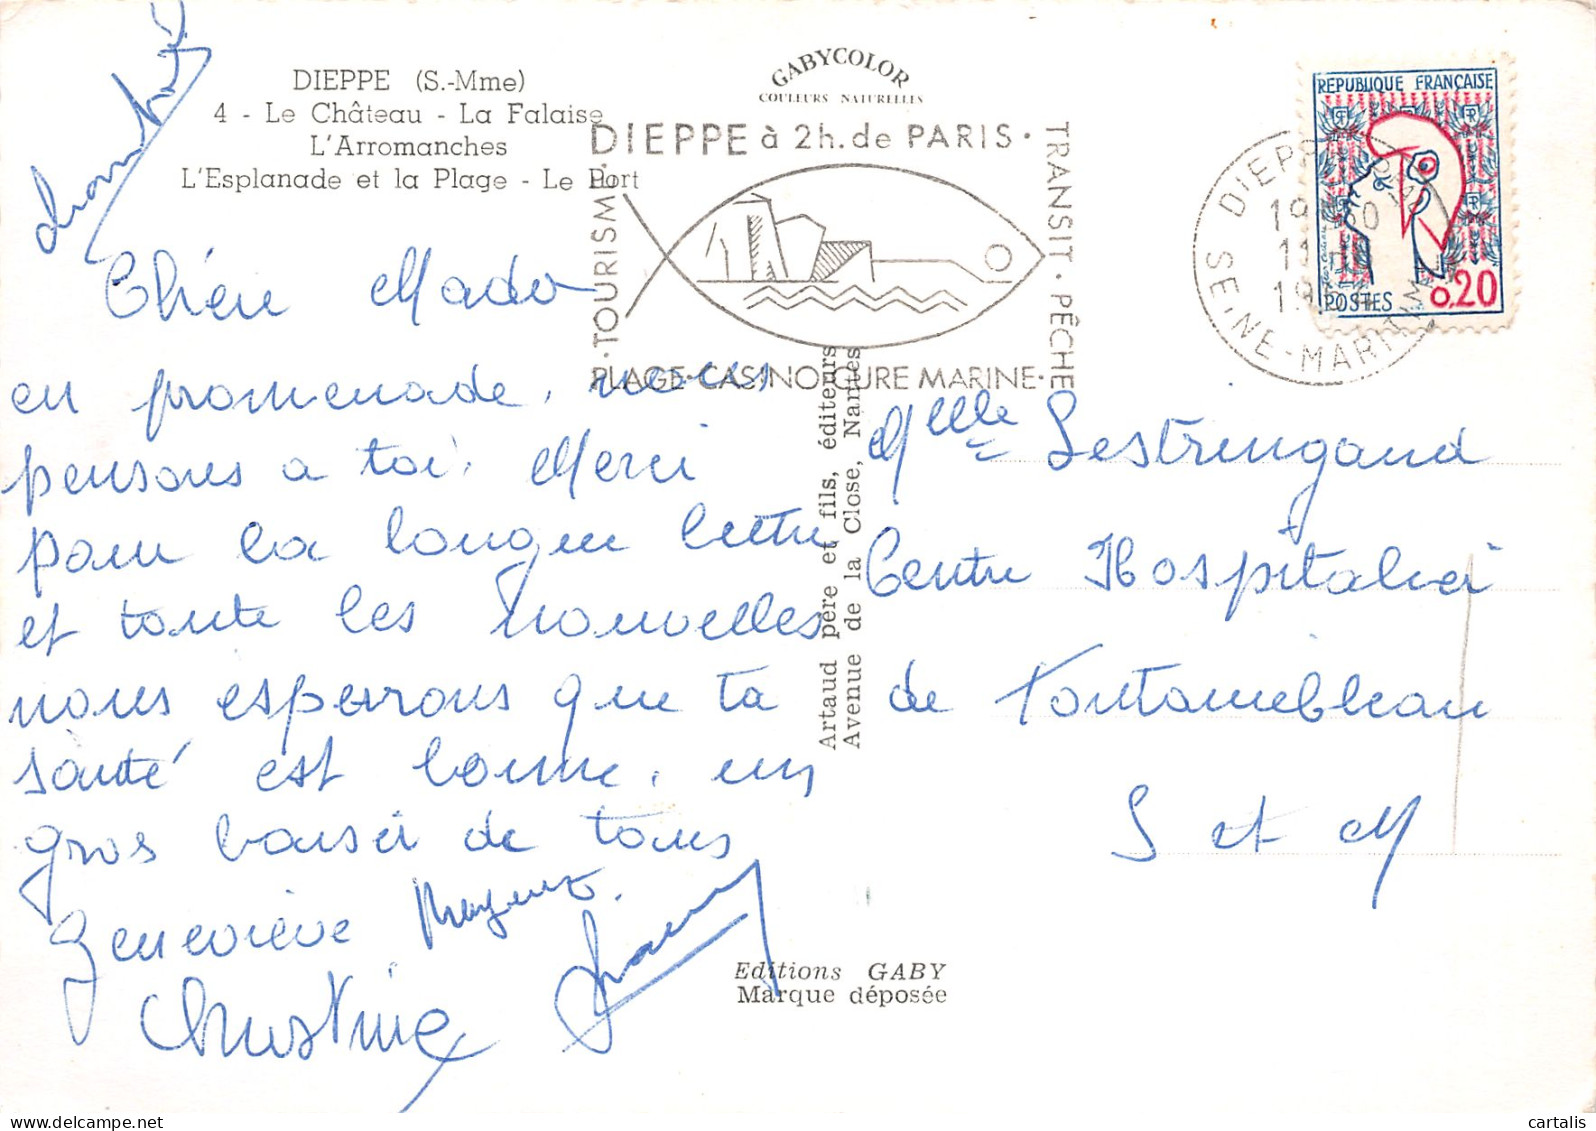 DIEPPE (S.-Mme)
4 - Le Château - La Falaise
L'Arromanches
L'Esplanade et la Plage - Le Port
GABYCOLOR
COULEURS NATURELLES
DIEPPE à 2h. de PARIS ·
TRANSIT · PÊCHE
PLAGE · CASINO · CURE MARINE ·
TOURISME
REPUBLIQUE FRANÇAISE
POSTES 0,20
DIEPPE
SEINE-MARITIME
Chère Mado
en promenade, nous
pensons a toi, Merci
pour la longue lettre
et toute les nouvelles
nous esperons que ta
santé est bonne, un
gros baiser de tous
Geneviève
Christine
Artaud père et fils, éditeurs
Avenue de la Close, Nantes
Mlle Lestringand
Centre Hospitalier
de Fontainebleau
S et M
Editions GABY
Marque déposée
cartalis